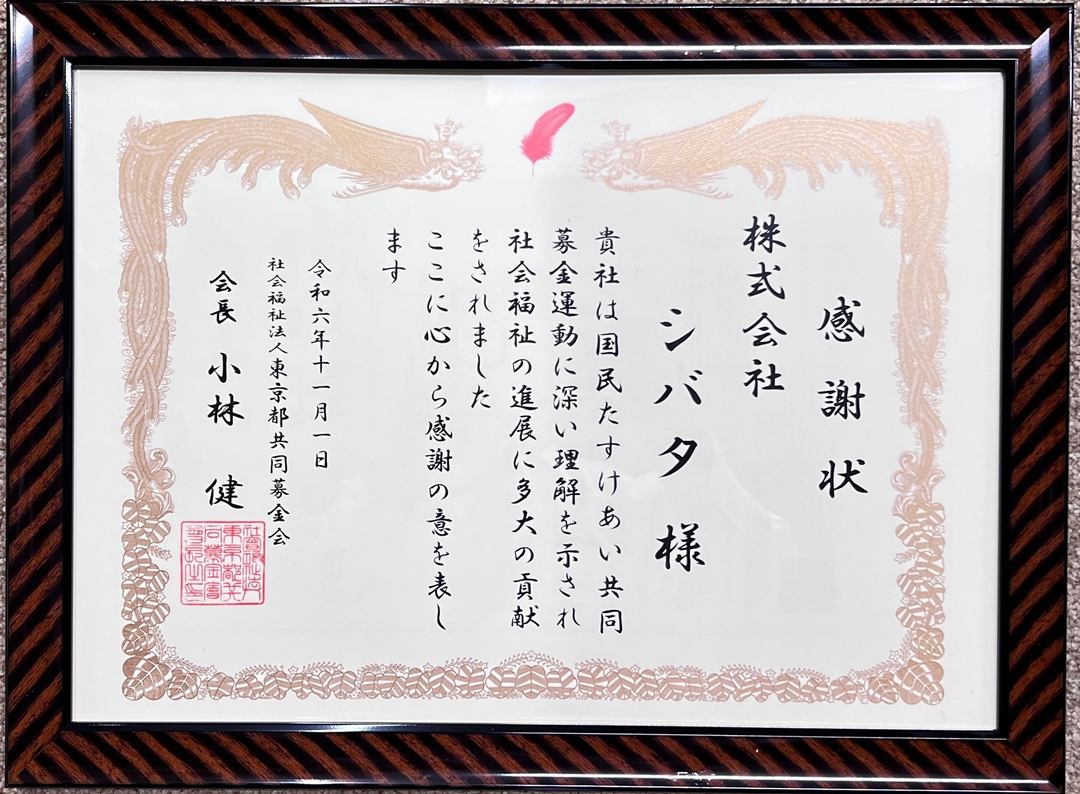 感謝状
株式会社
シバタ様
貴社は国民たすけあい共同
募金運動に深い理解を示され
社会福祉の進展に多大の貢献
をされました
ここに心から感謝の意を表し
ます
令和六年十一月一日
社会福祉法人東京都共同募金会
会長 小林 健